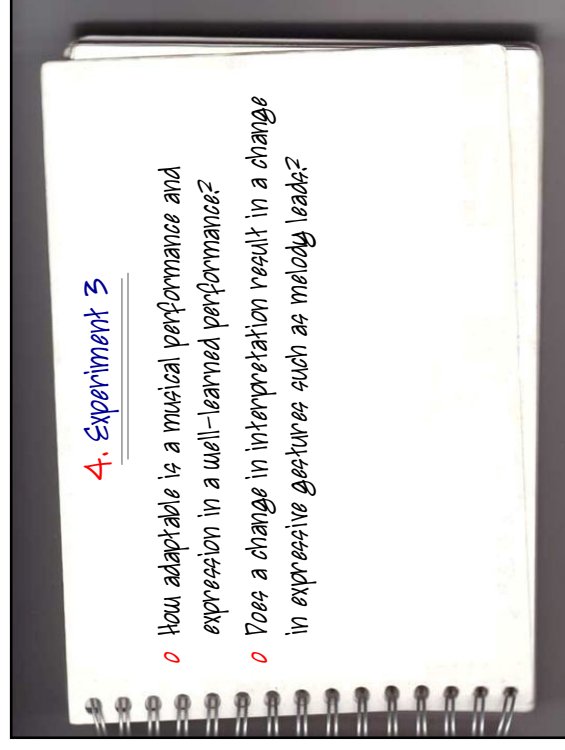 4. Experiment 3
o How adaptable is a musical performance and
expression in a well-learned performance?
o Does a change in interpretation result in a change
in expressive gestures such as melody leads?